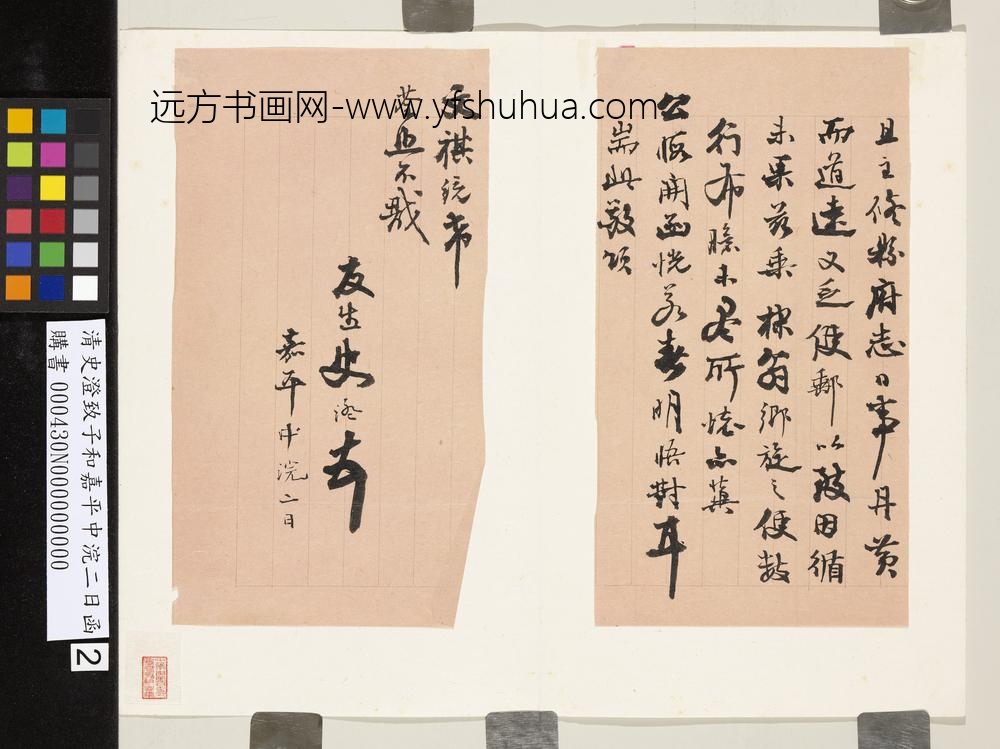 远方书画网-www.yfshuhua.com
且主修縣府志日事丹黄
而道遠又乏便郵以致因循
未果茲乘棣翁鄉旋之便數
行布臆未盡所懷亦冀
公暇開函恍若春明悟對耳
耑此敬頌
天祺統希
藹照不戩
友生史澄頓
嘉平中浣二日
清史澄致子和嘉平中浣二日函
購書 000430N000000000
2